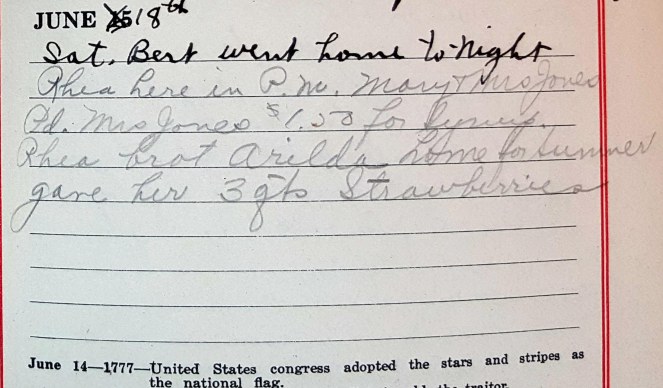 JUNE 15 18th
Sat. Bert went home to-night
Rhea here in P.M. Mary & Mrs Jones
Pd. Mrs Jones $1.50 for
Rhea brot Arilda home for summer
gave her 3 qts Strawberries
June 14—1777—United States congress adopted the stars and stripes as
the national flag.
the traitor.